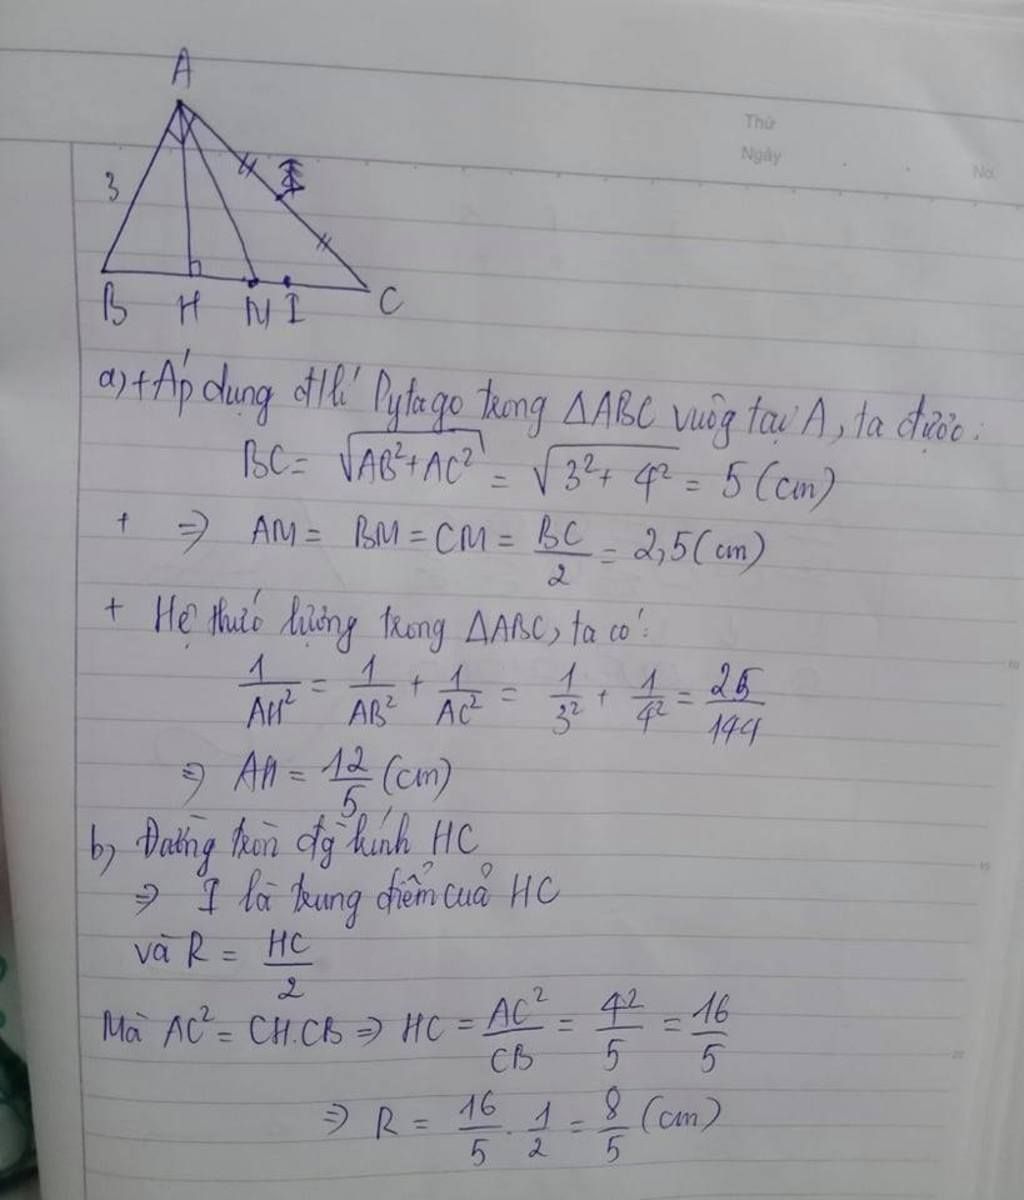 A
Thứ
Ngày
No.
3
B H M I C
a) + Áp dụng đlí Pytago trong ΔABC vuôg tại A, ta được:
BC = √(AB² + AC²) = √(3² + 4²) = 5 (cm)
+ ⇒ AM = BM = CM = BC/2 = 2,5 (cm)
+ Hệ thức lượng trong ΔABC, ta có:
1/AH² = 1/AB² + 1/AC² = 1/3² + 1/4² = 25/144
⇒ AH = 12/5 (cm)
b, Đường tròn đg kính HC
⇒ I là trung điểm của HC
và R = HC/2
Mà AC² = CH.CB ⇒ HC = AC²/CB = 4²/5 = 16/5
⇒ R = 16/5 . 1/2 = 8/5 (cm)